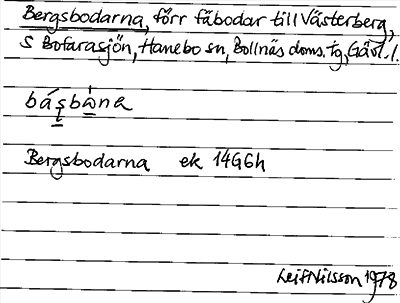 Bergsbodarna, förr fäbodar till Västerberg,
S Bofarasjön, Hanebo sn, Bollnäs doms. tg, Gävl. l.
básbȧna
Bergsbodarna ek 14G6h
Leif Nilsson 1978